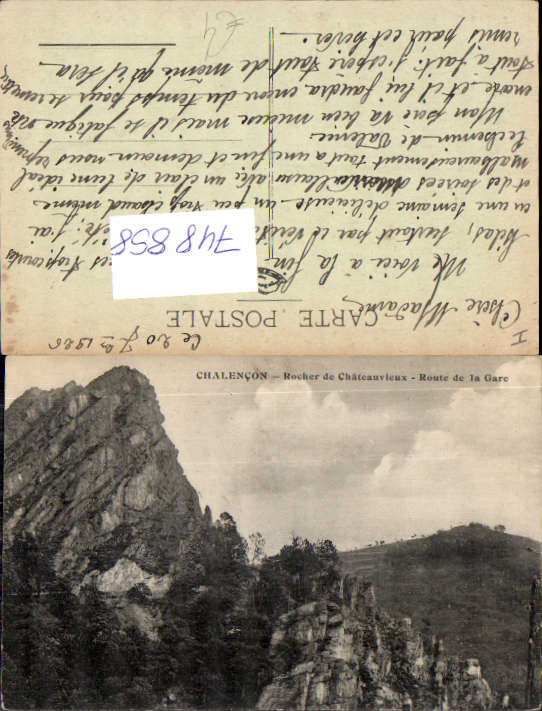 I
Ce 20 7bre 1926
CARTE POSTALE
Chère Madame
Me voici à la fin
trop courtes
hélas, surtout par ce vérit
été, j'ai
eu une semaine délicieuse un peu trop chaud même
et des soirées merveilleuses avec un clair de lune idéal
malheureusement tout a une fin et demain nous reprendrons
le chemin de Valence.
Mon père va bien mieux mais il se fatigue vite
encore et il lui faudra encore du temps pour se remettre
tout à fait. J'espère tout de même qu'il sera
remis pour cet hiver.
748 858
£4
CHALENÇON — Rocher de Châteauvieux - Route de la Gare